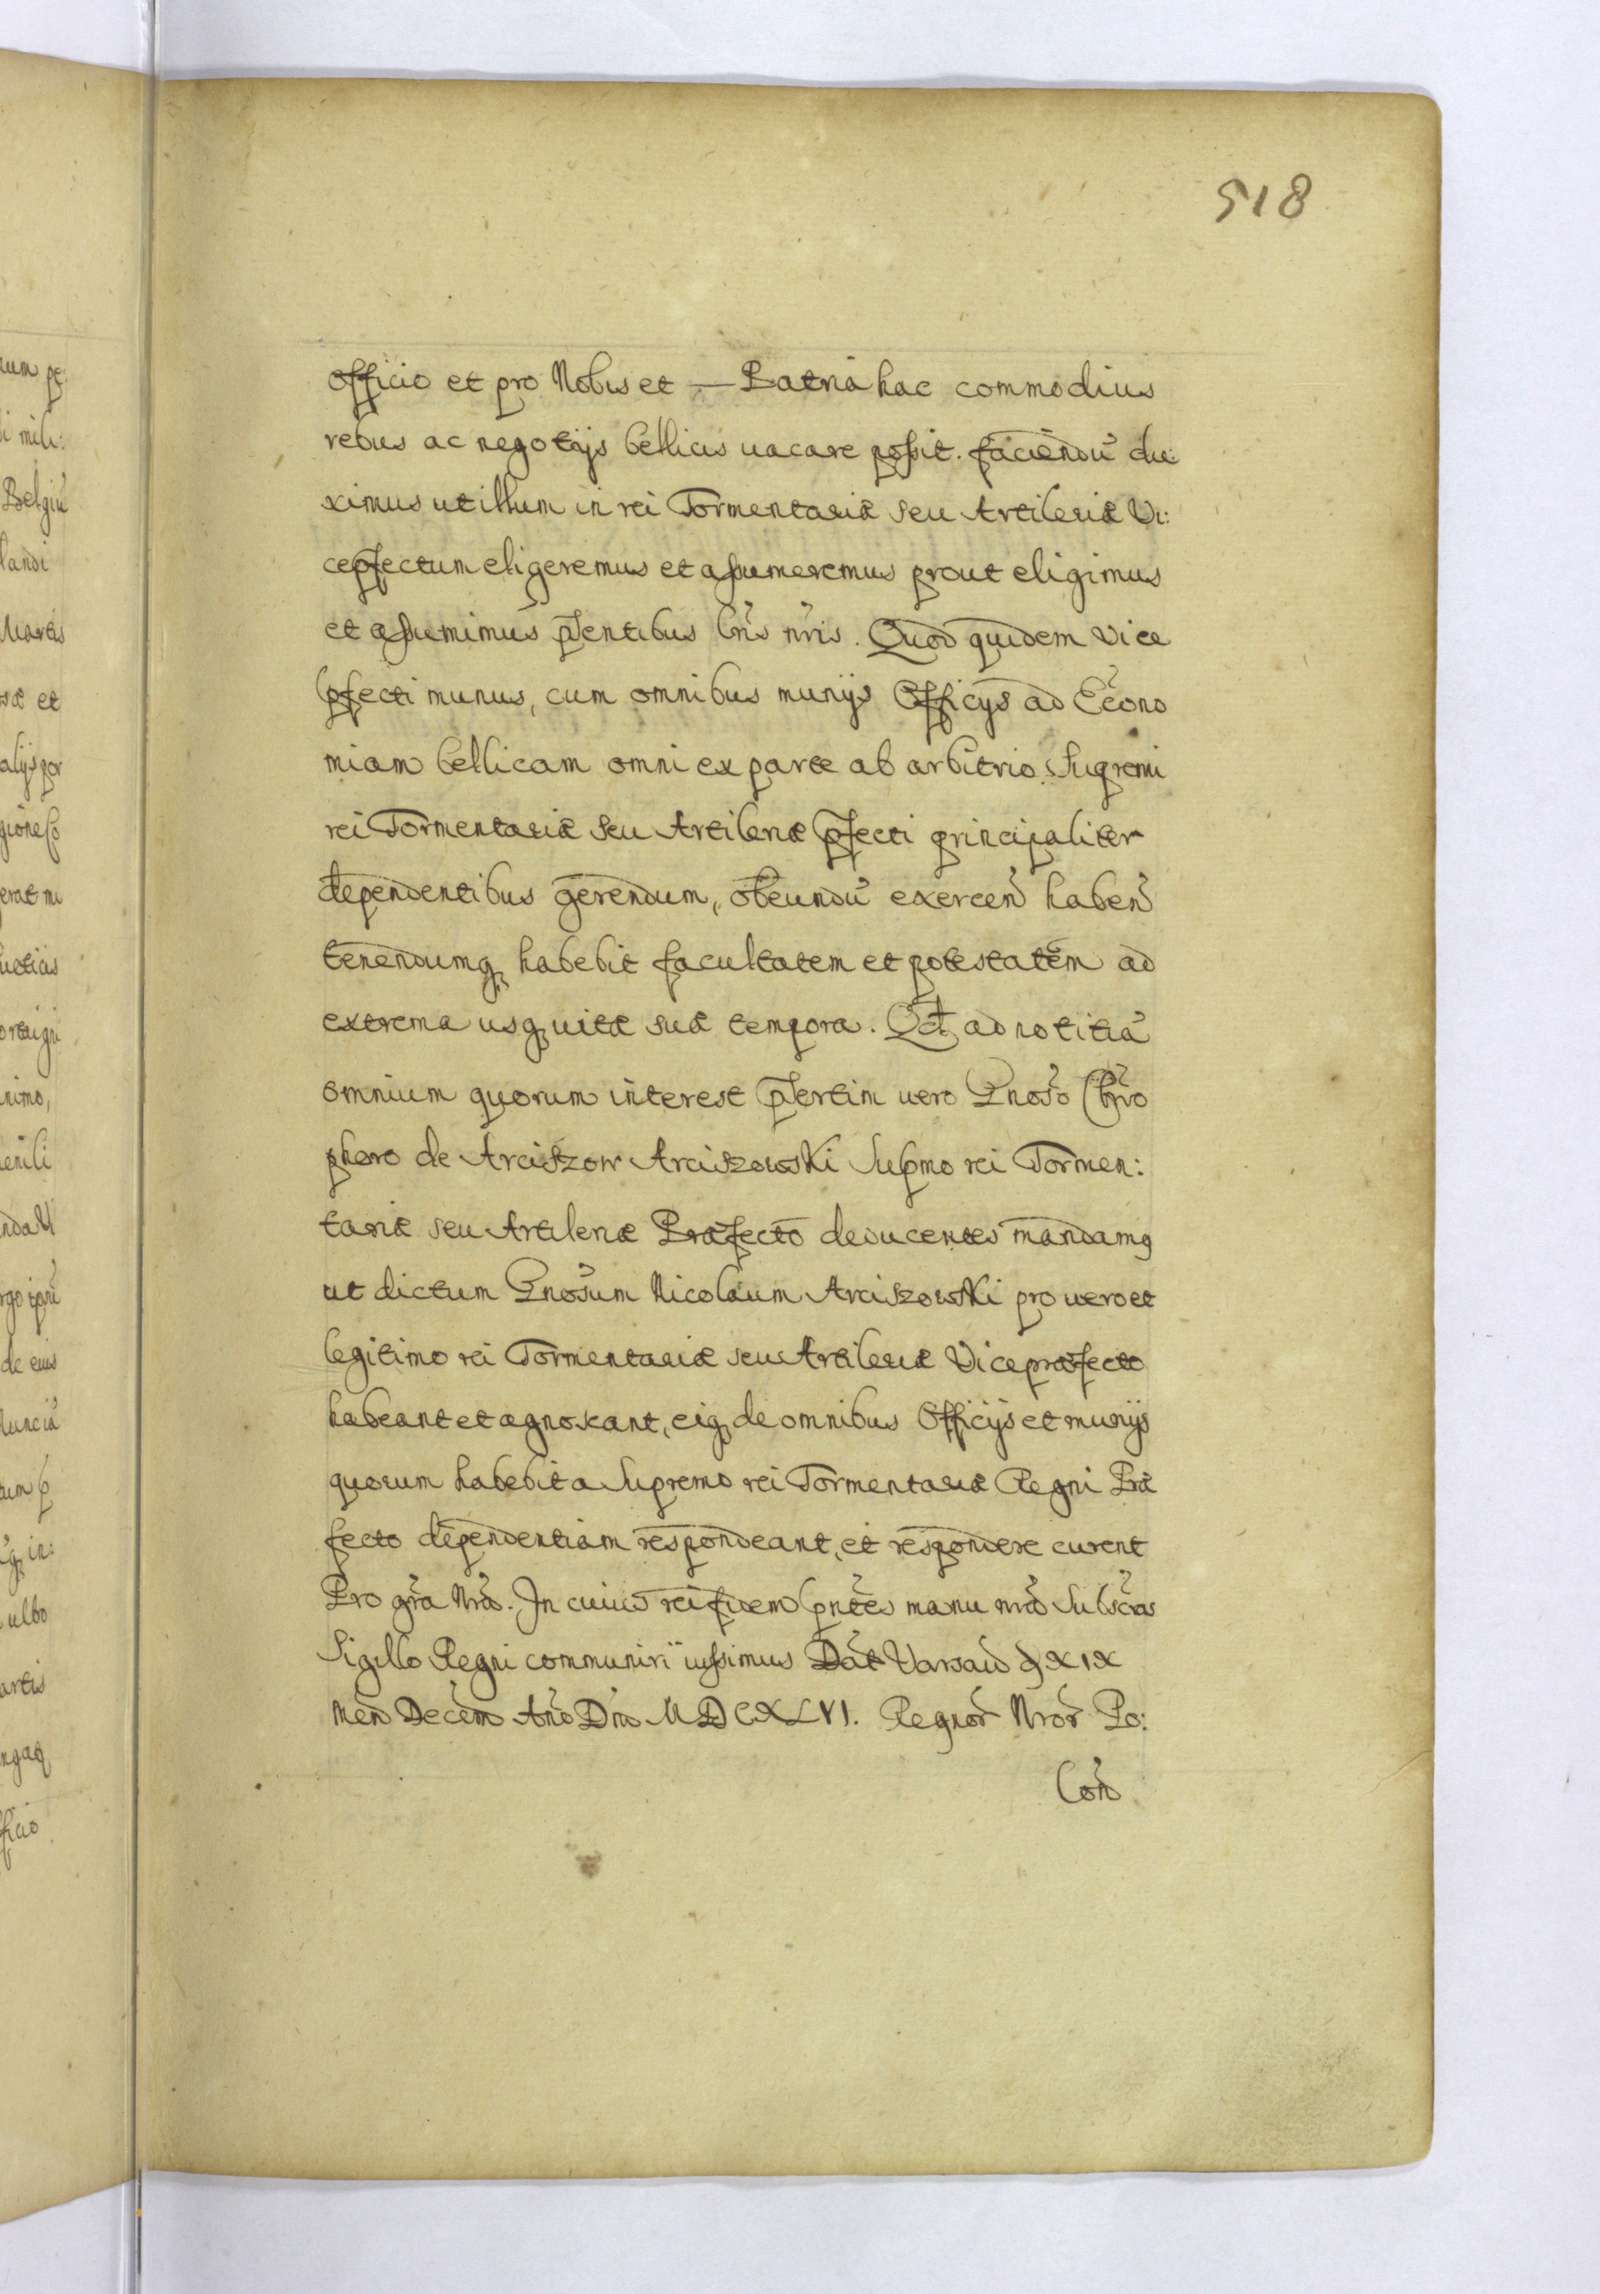 518
officio et pro Nobis et — Patria hac commodius
rebus ac negotijs bellicis uacare possit. faciendu᷃ du:
ximus ut illum in rei Tormentariæ seu Artileriæ Vi:
cepfectum eligeremus et assumeremus prout eligimus
et assumimus p̃sentibus Lr̃is nr̃is. Quod quidem Vice
p̃fecti munus, cum omnibus munijs Officijs ad Œcono
miam bellicam omni ex parte ab arbitrio Supremi
rei Tormentariæ seu Artileriæ p̃fecti principaliter
dependentibus gerendum, obeundũ exerceñ habeñ
tenendumq habebit facultatem et potestatem ad
extrema usq uitæ suæ tempora. Qd̃ ad notitiã
omnium quorum interest p̃sertim uero Gnõso Chr̃o
phoro de Arciszow Arciszowski Supmo rei Tormen:
tariæ seu Artileriæ Præfecto deducentes mandamq
ut dictum Gnõsum Nicolaum Arciszowski pro uero et
legitimo rei Tormentariæ seu Artileriæ Vicepræfecto
habeant et agnoscant, eiq de omnibus Officijs et munijs
quorum habebit a Supremo rei Tormentariæ Regni Præ
fecto dependentiam respondeant, et respondere curent
Pro gr̃a Nr̃a. In cuius rei fidem p̃ntes manu nr̃a Subscr̃as
Sigillo Regni communiri iussimus Dat Varsaụ d XIX
Men Decem Ano Dni MDCXLVI. Regnor̃ Nror̃ Po:
Lon̄